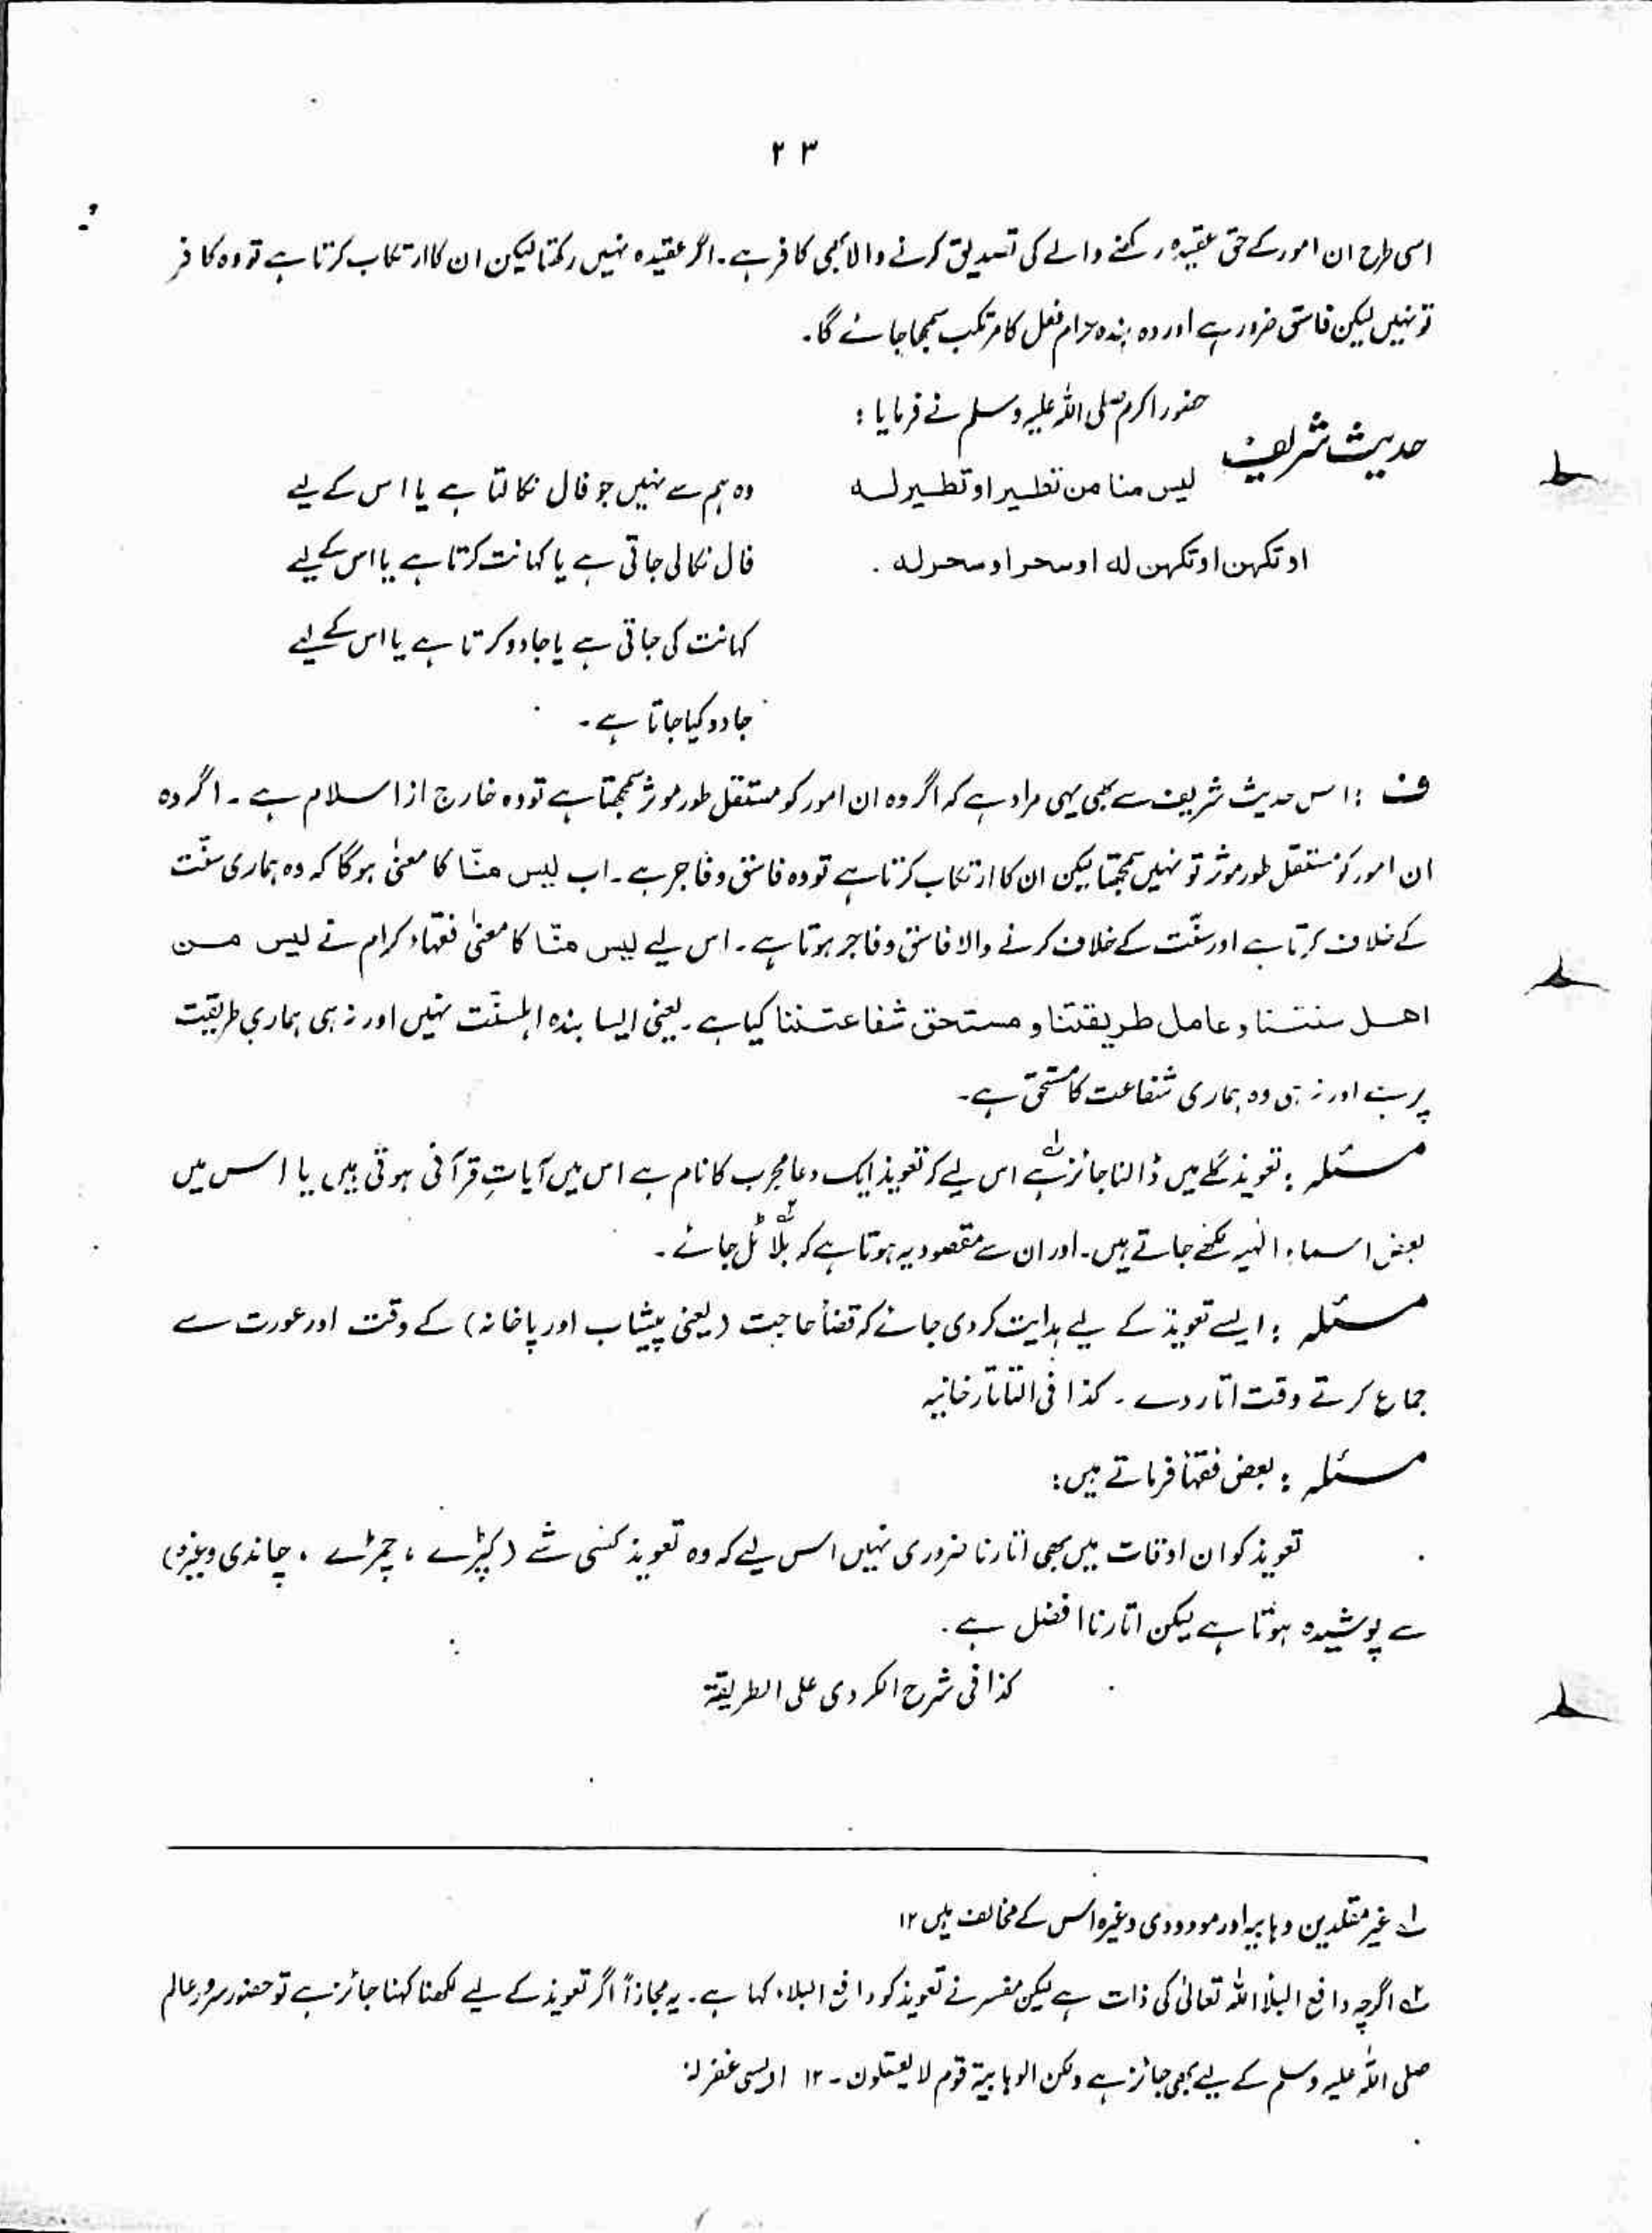 ۲۳
اسی طرح ان امور کے حق عقیدہ رکھنے والے کی تصدیق کرنے والا بھی کافر ہے۔ اگر عقیدہ نہیں رکھتا لیکن ان کا ارتکاب کرتا ہے تو وہ کافر
تو نہیں لیکن فاسق ضرور ہے اور وہ بندہ حرام فعل کا مرتکب سمجھا جائے گا۔
حضور اکرم صلی اللہ علیہ وسلم نے فرمایا :
حدیث شریف
لیس منا من تطیر او تطیر لہ
او تکہن او تکہن لہ او سحر او سحر لہ ۔
وہ ہم سے نہیں جو فال نکالتا ہے یا اس کے لیے
فال نکالی جاتی ہے یا کہانت کرتا ہے یا اس کے لیے
کہانت کی جاتی ہے یا جادو کرتا ہے یا اس کے لیے
جادو کیا جاتا ہے ۔
ف : اس حدیث شریف سے بھی یہی مراد ہے کہ اگر وہ ان امور کو مستقل طور موثر سمجھتا ہے تو وہ خارج از اسلام ہے ۔ اگر وہ
ان امور کو مستقل طور موثر تو نہیں سمجھتا لیکن ان کا ارتکاب کرتا ہے تو وہ فاسق و فاجر ہے ۔ اب لیس منّا کا معنیٰ ہوگا کہ وہ ہماری سنّت
کے خلاف کرتا ہے اور سنّت کے خلاف کرنے والا فاسق و فاجر ہوتا ہے ۔ اس لیے لیس منّا کا معنیٰ فقہاء کرام نے لیس من
اھل سنتنا و عامل طریقتنا و مستحق شفاعتنا کیا ہے ۔ یعنی ایسا بندہ اہلسنّت نہیں اور نہ ہی ہماری طریقت
پر ہے اور نہ ہی وہ ہماری شفاعت کا مستحق ہے ۔
مسئلہ : تعویذ گلے میں ڈالنا جائز ہے۱ اس لیے کہ تعویذ ایک دعا مجرب کا نام ہے اس میں آیاتِ قرآنی ہوتی ہیں یا اس میں
بعض اسماء الٰہیہ لکھے جاتے ہیں۔ اور ان سے مقصود یہ ہوتا ہے کہ بلا۲ ٹل جائے ۔
مسئلہ : ایسے تعویذ کے لیے ہدایت کر دی جائے کہ قضأ حاجت (یعنی پیشاب اور پاخانہ) کے وقت اور عورت سے
جماع کرتے وقت اتار دے ۔ کذا فی التاتارخانیہ
مسئلہ : بعض فقہأ فرماتے ہیں :
تعویذ کو ان اوقات میں بھی اتارنا ضروری نہیں اس لیے کہ وہ تعویذ کسی شے (کپڑے ، چمڑے ، چاندی وغیرہ)
سے پوشیدہ ہوتا ہے لیکن اتارنا افضل ہے ۔
کذا فی شرح الکردی علی الطریقۃ
۱ غیر مقلدین وہابیہ اور مودودی وغیرہ اس کے مخالف ہیں ۱۲
۲ اگرچہ دافع البلأ اللہ تعالیٰ کی ذات ہے لیکن مفسر نے تعویذ کو دافع البلاء کہا ہے ۔ یہ مجازاً اگر تعویذ کے لیے لکھنا کہنا جائز ہے تو حضور سرور عالم
صلی اللہ علیہ وسلم کے لیے بھی جائز ہے ولکن الوہابیۃ قوم لا یعقلون ۔ ۱۲ اویسی غفرلہٗ